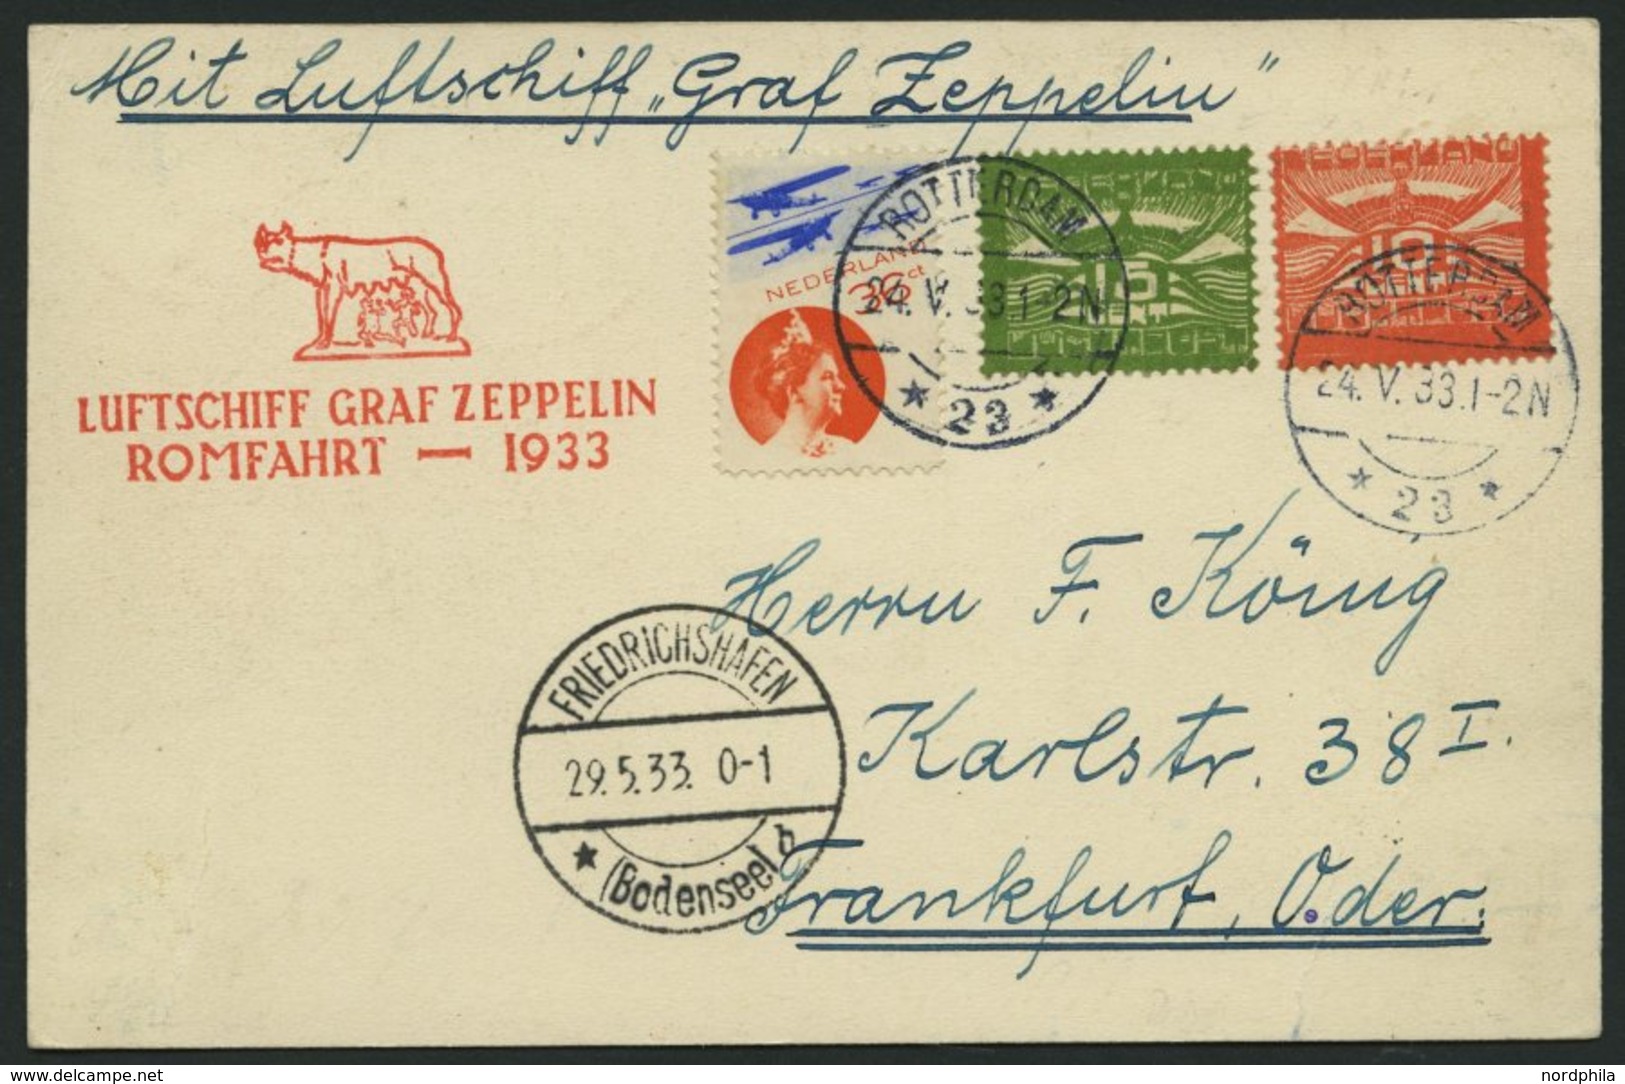 Mit Luftschiff „Graf Zeppelin"
LUFTSCHIFF GRAF ZEPPELIN
ROMFAHRT — 1933
NEDERLAND
36 ct
15
CENT
10
ROTTERDAM
24. V. 33.1-2N
* 23 *
ROTTERDAM
24. V. 33.1-2N
* 23 *
Herrn F. König
Karlstr. 38 I.
Frankfurt, Oder.
FRIEDRICHSHAFEN
29.5.33. 0-1
* (Bodensee) b
www.delcampe.net
nordphila